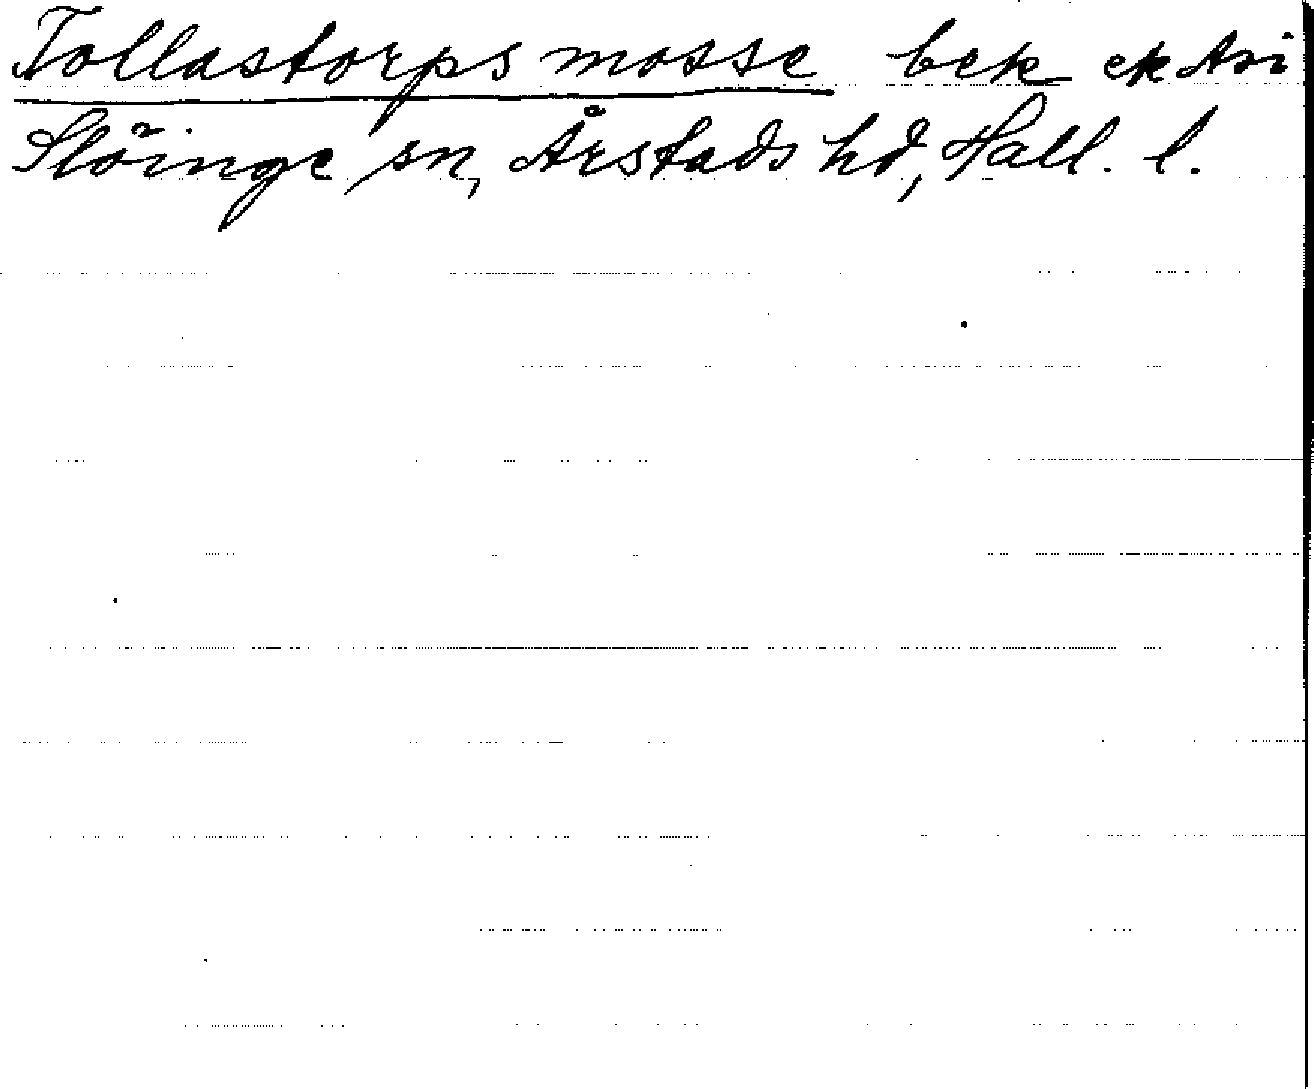 Tollastorps mosse bek ek Asi
Slöinge sn, Årstads hd, Hall. l.